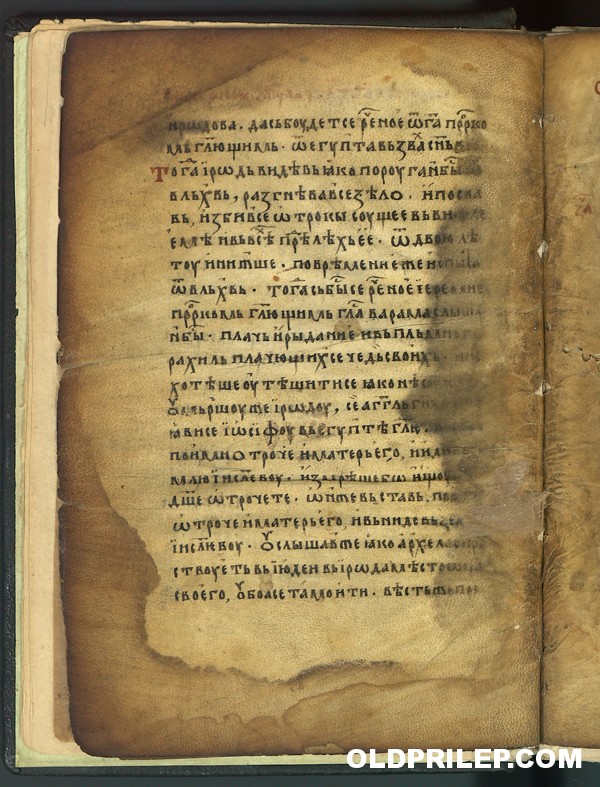 ирѡдова. да съ боудет се рⷱ҇еное ѿ га҇ прⷪ҇рко
мь гл҇ющимь. ѿ егупта възвахь
Тогⷣа їрѡдь видѣвь ꙗко пороуганъ бы
вльхвь, разгнѣва се ѕѣло. и посла
вь, изби все ѡтрокы соущее вь ви
емѣ и вь всⷯѣ прⷣѣлѣхь ее. ѿ двою лѣ
тоу и нижше. по врѣмени еже испы
ѿ вльхвь. Тогⷣа сьбы се рⷱ҇еное їере
прⷪ҇ркомь гл҇ющимь глⷭ҇а вь рама
бы. плачь и рыдание и вьпль
рахиль плачющи се чедь своихь
хотѣше оутѣшити се ꙗко нѣсо
Оумьршоу же їрѡдоу, се агг҇ль г
ꙗви се їѡсифоу вь егуптѣ гл҇ѥ.
поими отроче и матерь его, и иди
млю їиⷭ҇левоу. измрѣше бо ищоу
дш҇е ѡтрочете. ѡн же вьставь, по
ѡтроче и матерь его, и вьниде вь зе
їиⷭ҇левоу. Оуслышав же ꙗко архела
ствоуеть вь їюдеи вь їрѡда мѣсто
своего, оубоа се тамо ити. вѣсть же
OLDPRILEP.COM